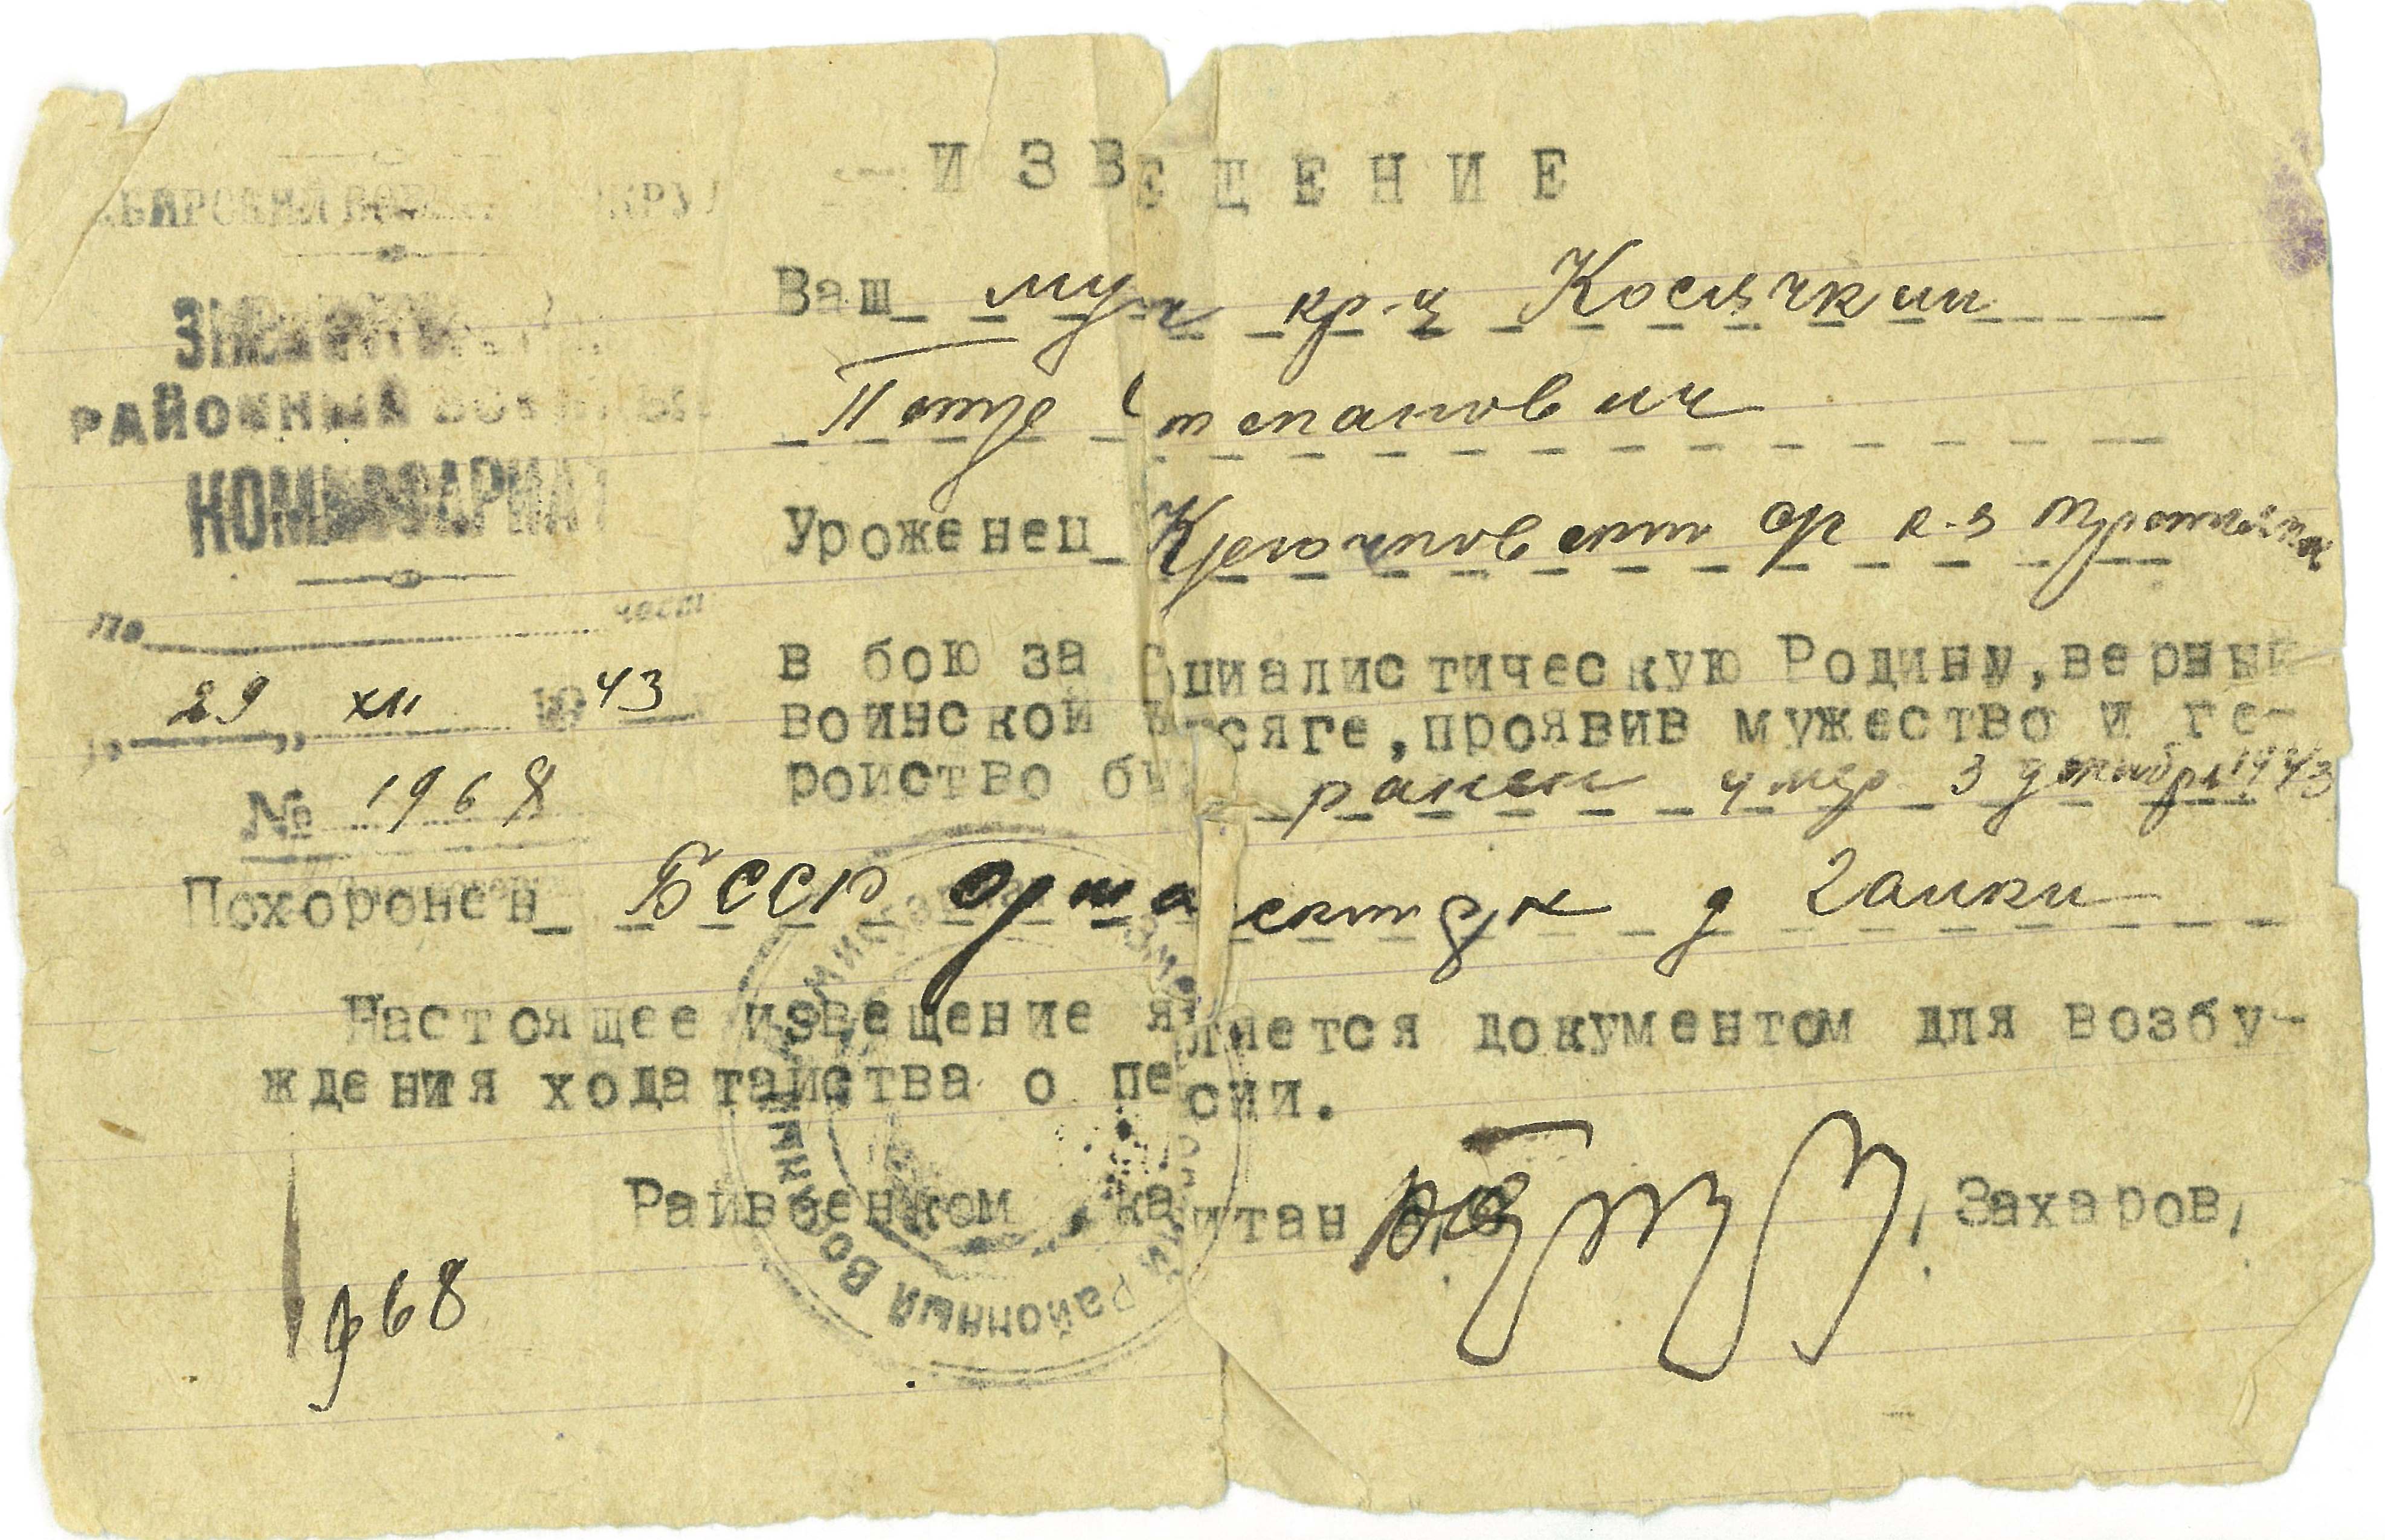 ИЗВЕЩЕНИЕ
РАЙОННЫЙ
КОМИССАРИАТ
по части
"29" XII 1943
№ 1968
Ваш муж кр-ц Косячкин
Петр Степанович
Уроженец Крючковский
в бою за социалистическую Родину, верный
воинской присяге, проявив мужество и ге-
ройство был ранен умер 3 декабря 1943
Похоронен БССР Оршанский р/н д Гаики
Настоящее извещение является документом для возбу-
ждения ходатайства о пенсии.
Райвоенком капитан /Захаров/
1968
Районный Военный